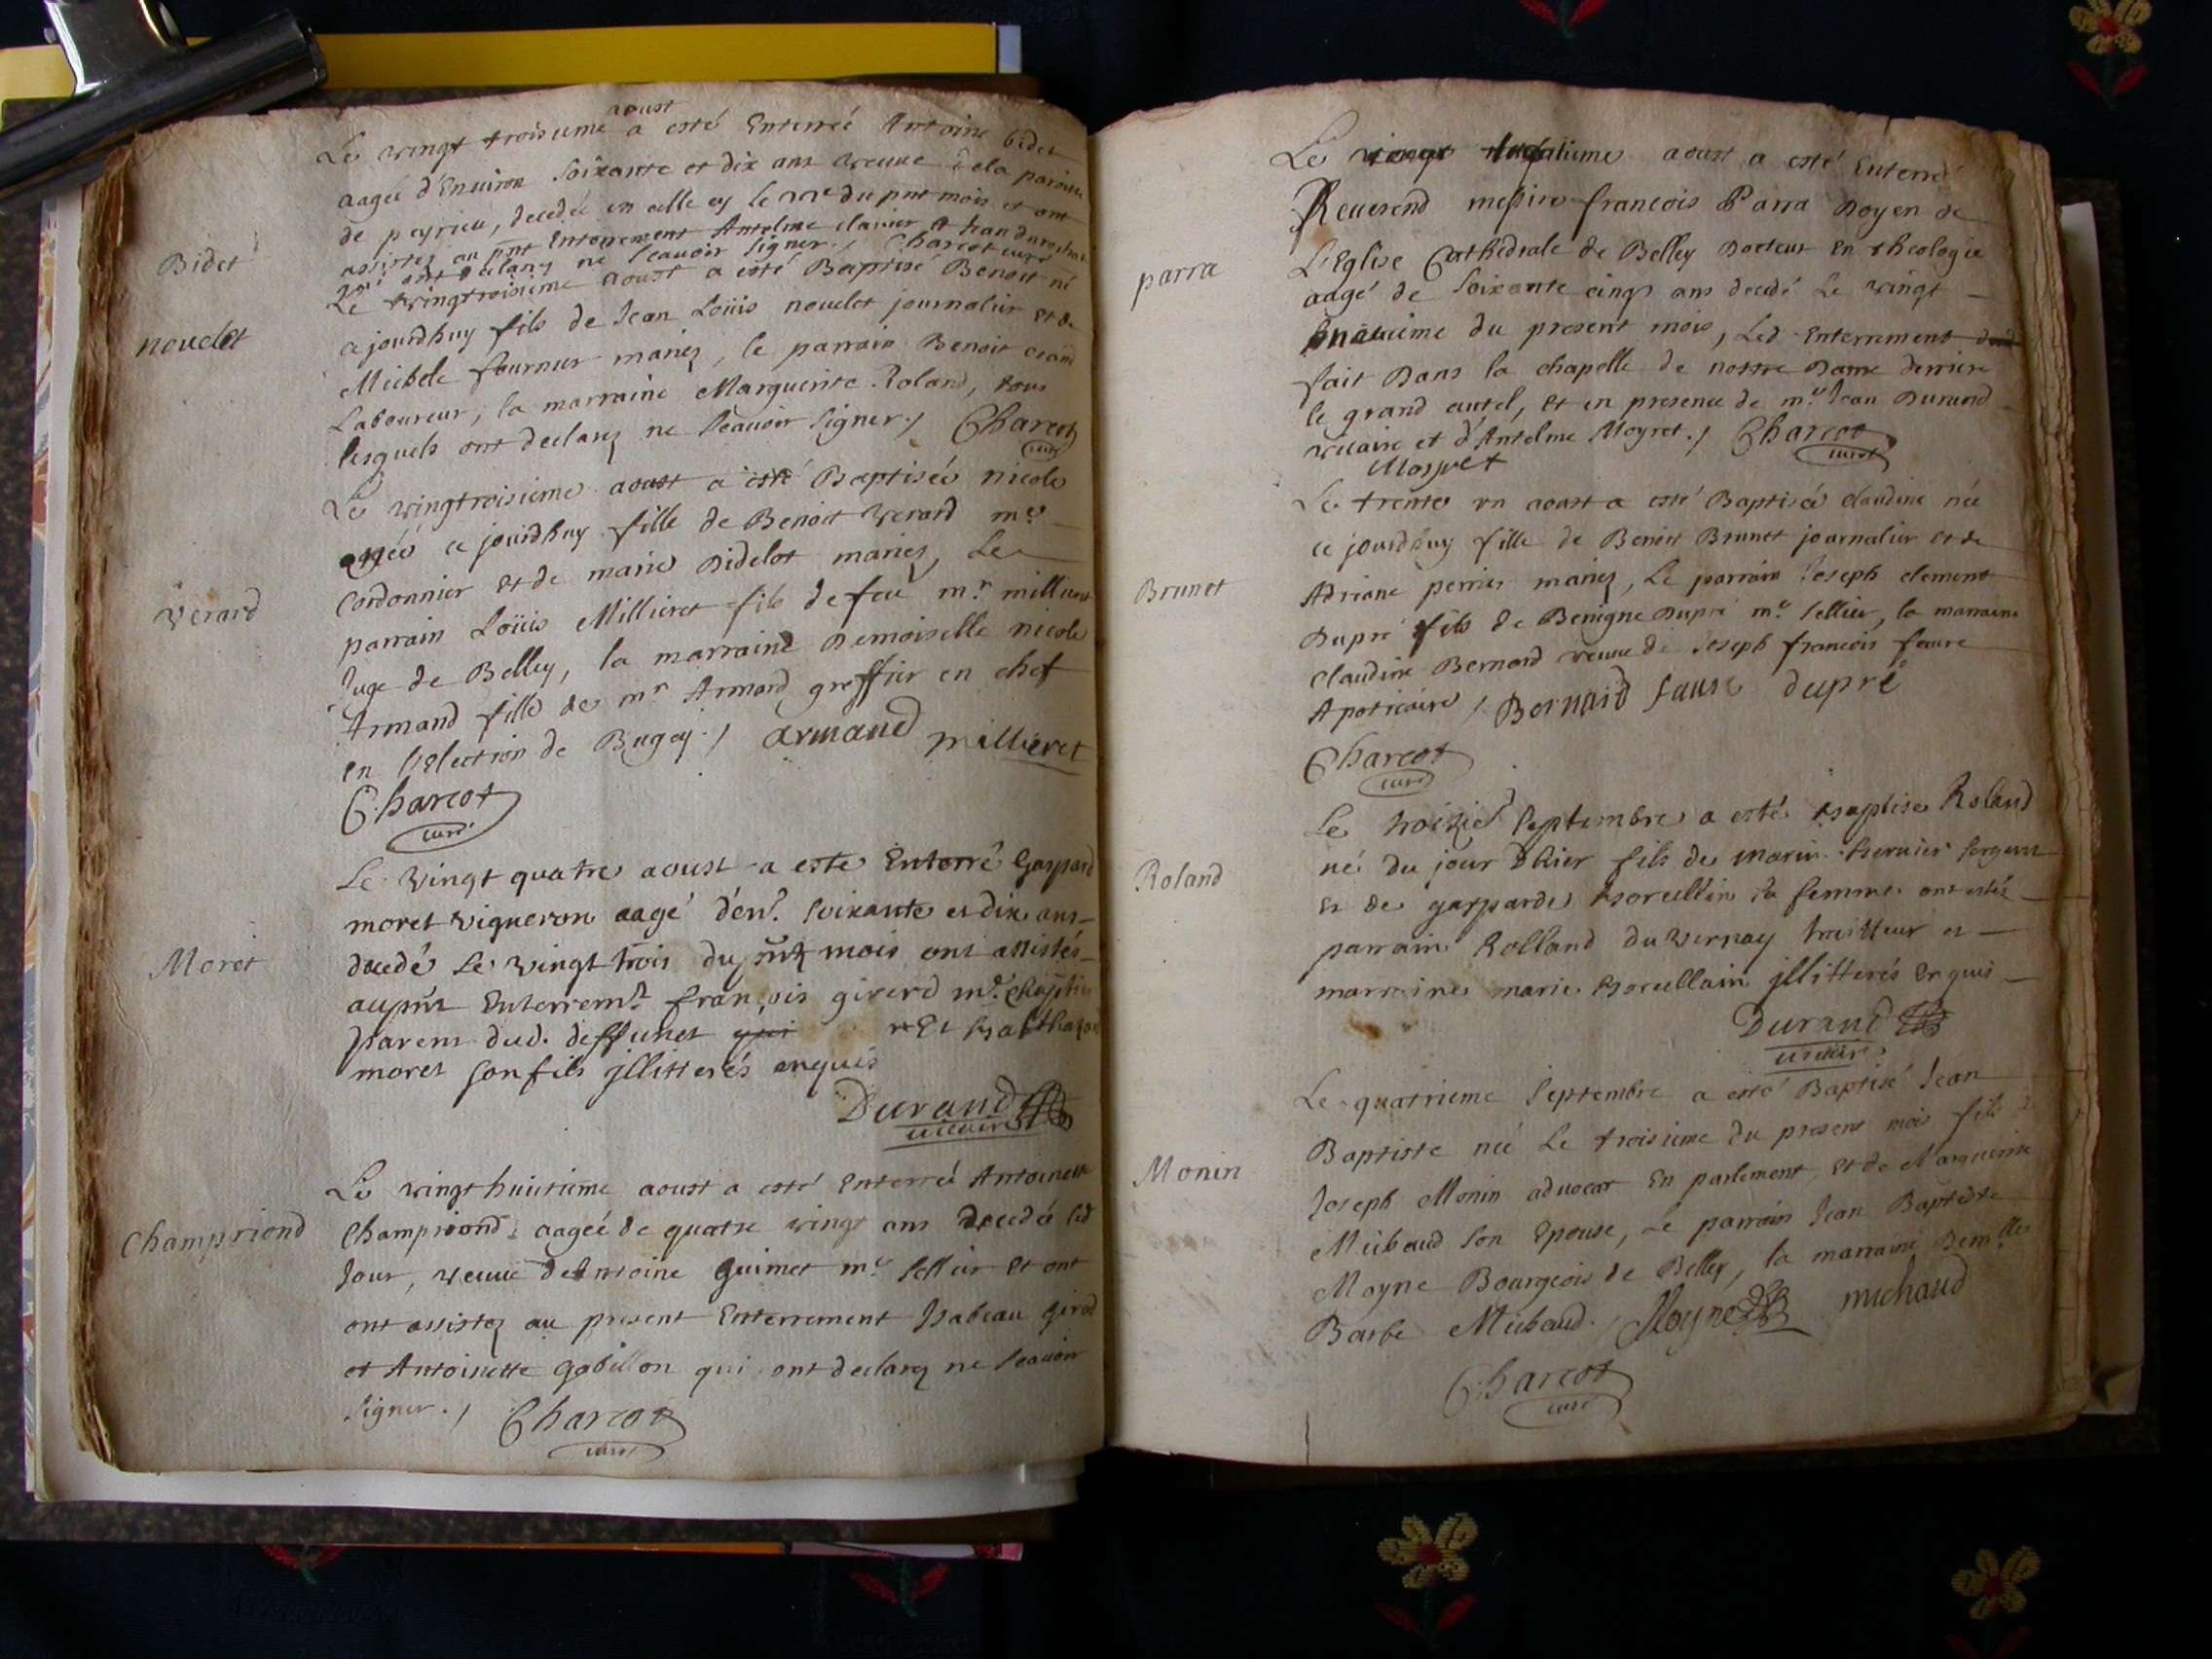 aoust
Le vingt troisieme a esté Enterreé Antoine bidet
aageé d'Environ Soixante et dix ans veuue de la paroisse
de peyrieu, decedeé en celle cy le du pnt mois et ont
assistez au pnt Enterrement Antelme clavier
qui ont declarez ne Scauoir Signer./ Charcot curé
Bidet
Le vingtroisieme aoust a esté Baptisé Benoit né
nouelet
cejourdhuy fils de Jean Loüis nouelet journalier et de
Michele fournier mariez, le parrain Benoit
Laboureur, la marraine Marguerite Roland, tous
lesquels ont declarez ne Scauoir Signer./ Charcot
curé
Le vingtroisieme aoust a esté Baptiseé nicole
neé ce jourdhuy fille de Benoit verard me
verard
Cordonnier et de marie Didelot mariez, Le
parrain Loüis Millieret fils de feu mr. millieret
Juge de Belley, la marraine Demoiselle nicole
Armand fille de mr Armand greffier en chef
en l'election de Bugey./ armand millieret
Charcot
curé
Le vingt quatre aoust a este Enterré Gaspard
moret vigneron aagé d'env. soixante et dix ans
Moret
decedé Le vingt trois du pnt mois ont assistés
au pnt Enterremt. francois girerd md.
parent dud. deffunct qui et Balthazar
moret son fils jllitterés enquis
Durand
vicaire
Le vingt huitieme aoust a esté Enterreé Antoinette
Champriond
Champriond aageé de quatre vingt ans Decedeé led
Jour, veuue de Antoine Guimet me Sellier et ont
ont assistez au present Enterrement Isabeau girod
et Antoinette gobillon qui ont declarez ne Scauoir
Signer./ Charcot
curé
Le vingt aoust a esté Enterré
Reuerend messire francois Parra Doyen de
parra
L'Eglise Cathedrale de Belley Docteur En theologie
aagé de Soixante cinq ans decedé Le vingt
du present mois, Led. Enterrement
fait Dans la chapelle de nostre Dame derriere
le grand autel, et en presence de me. Jean Durand
vicaire et d'Antelme Moyret./ Charcot
curé
Moyret
Le trente vn aoust a esté Baptiseé claudine neé
ce jourdhuy fille de Benoit Brunet journalier et de
Brunet
Adriane perrier mariez, Le parrain Joseph clement
Dupré fils de Benigne Dupré me. Sellier, la marraine
Claudine Bernard veuue de Joseph francois faure
Apoticaire / Bernard faure dupré
Charcot
curé
Le troisie Septembre a esté baptise Roland
Roland
né du jour d'hier fils de marin bernier sergent
et de gasparde borcellin sa femme ont estés
parrain Rolland du vernay traitteur et
marraine marie borcellain jllitterés Enquis
Durand
vicaire
Le quatrieme Septembre a esté Baptisé Jean
Baptiste neé Le troisieme du present mois fils de
Monin
Joseph Monin aduocat En parlement, et de Marguerite
Michaud Son Epouse, Le parrain Jean Baptiste
Moyne Bourgeois de Belley, la marraine Demlle
Barbe Michaud. / Moyne michaud
Charcot
curé